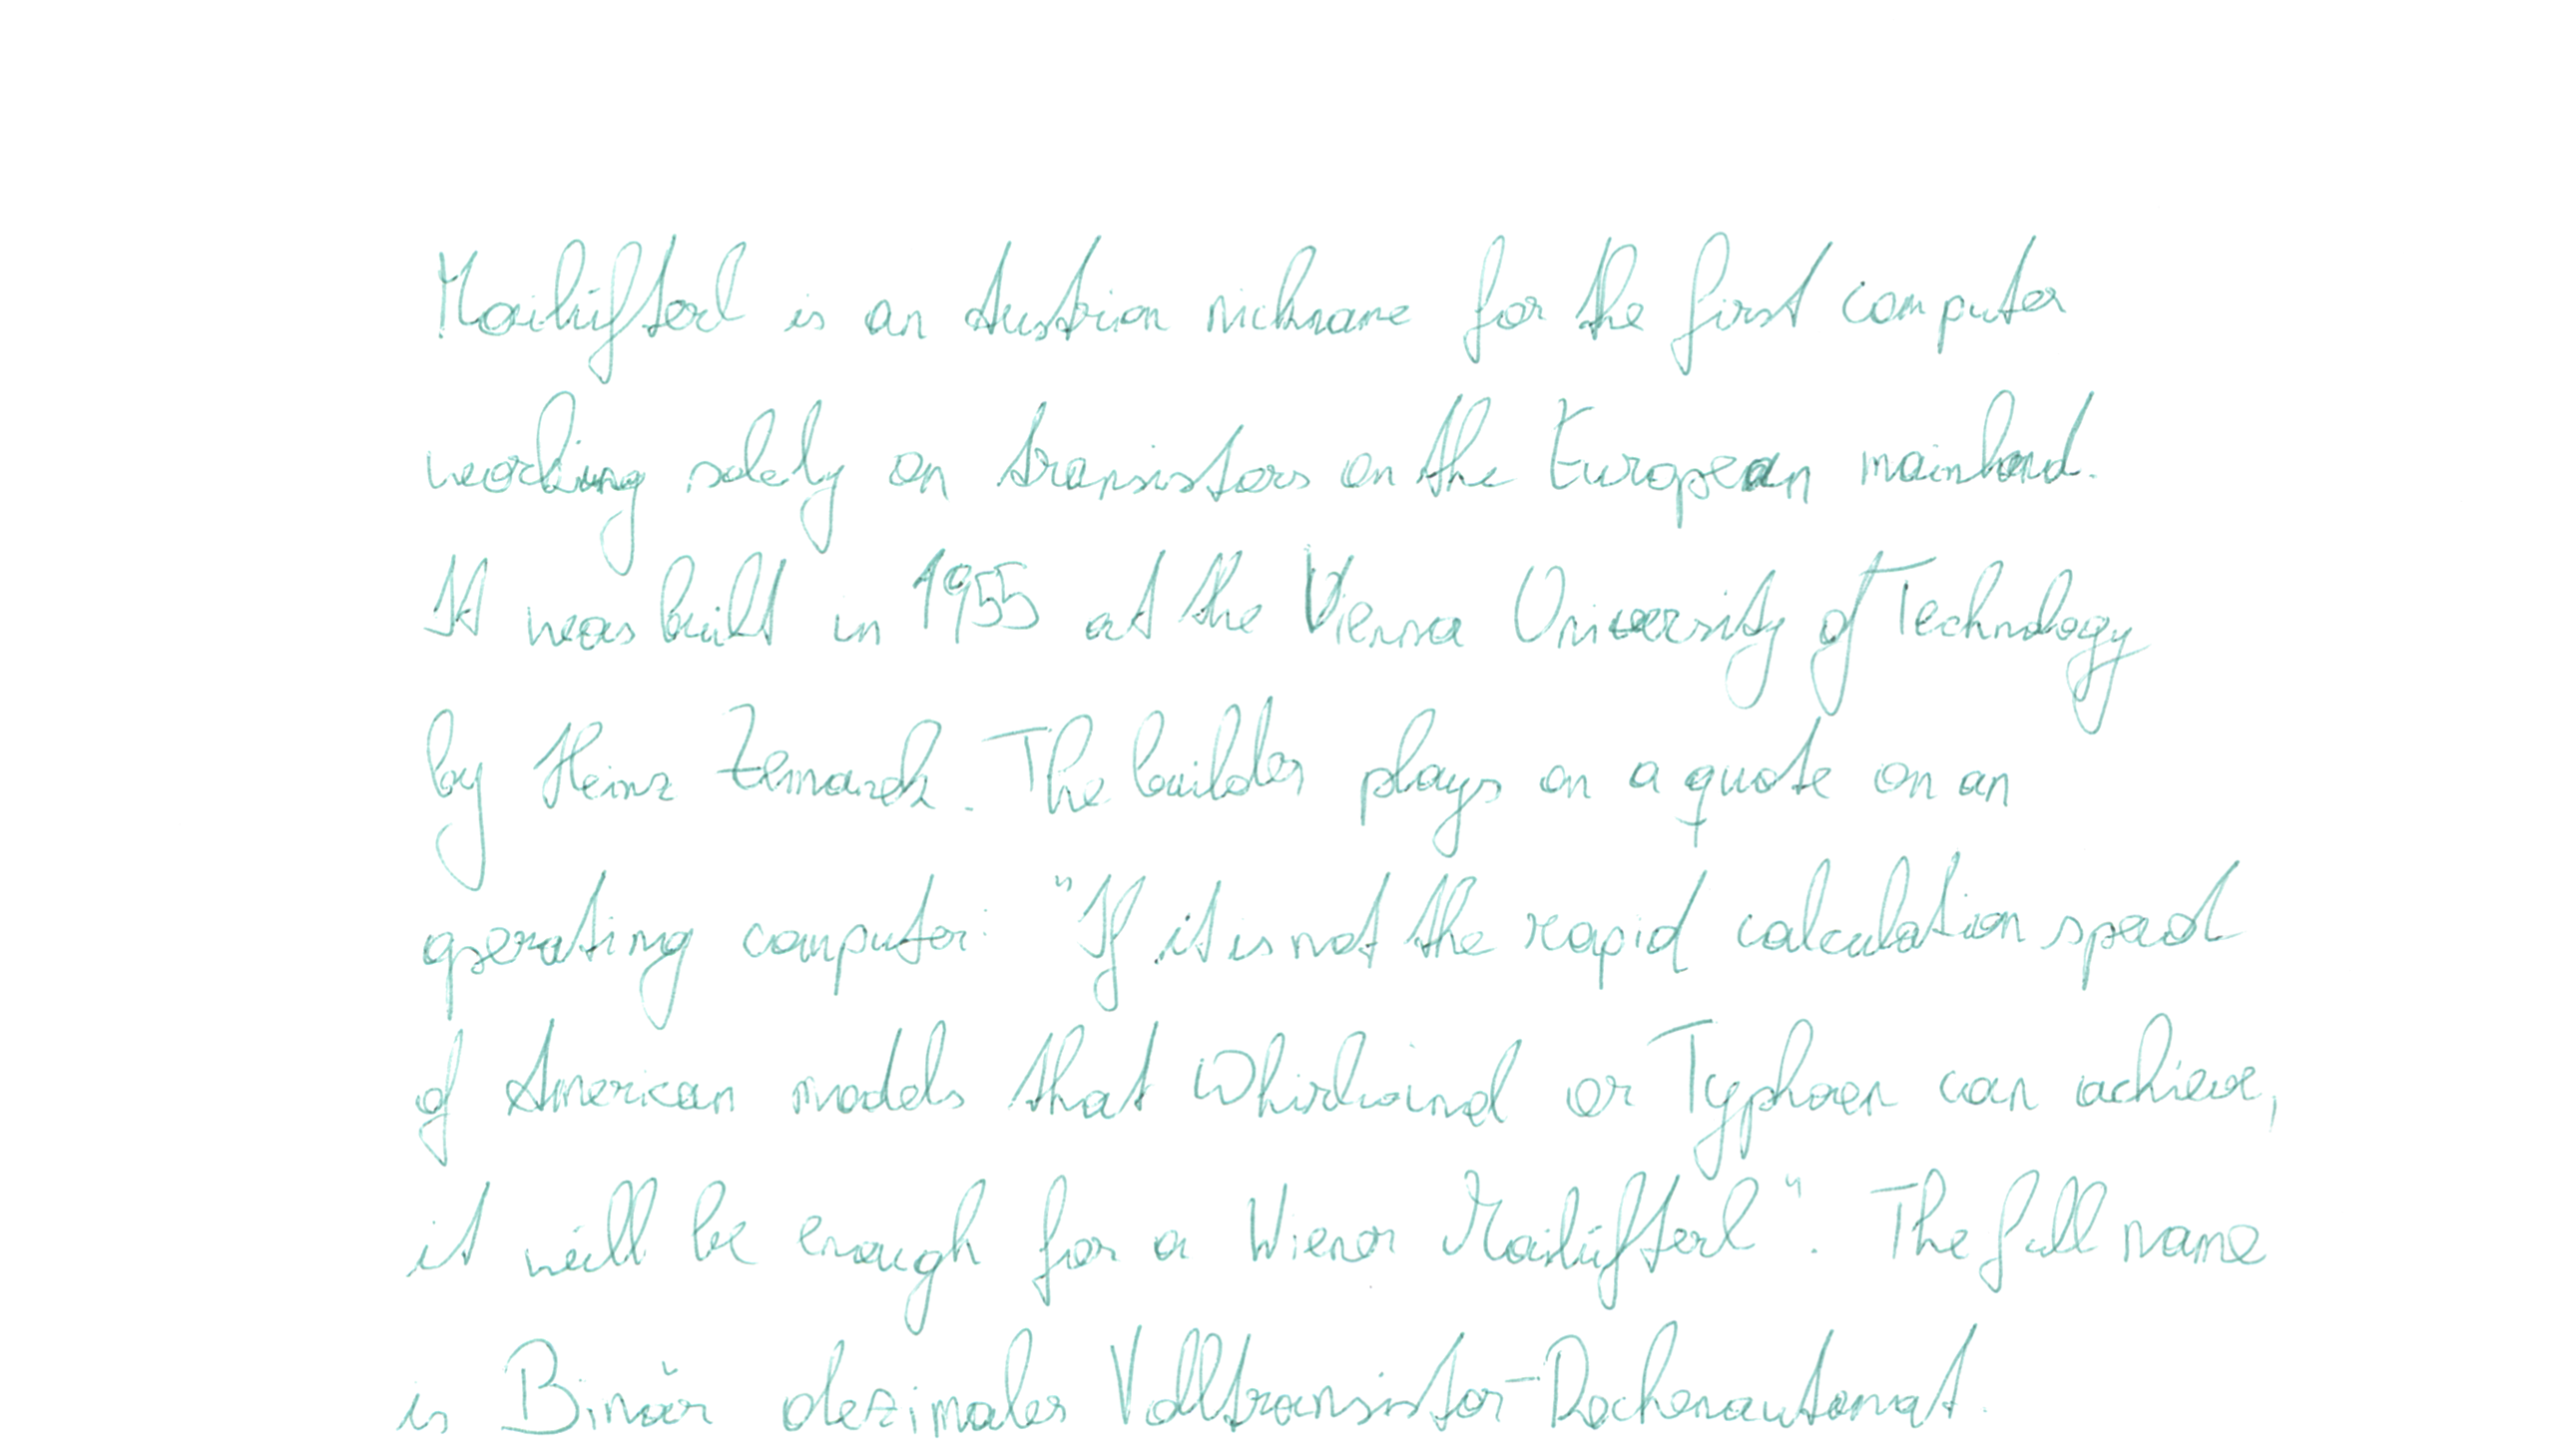 Mailüfterl is an Austrian nickname for the first computer
working solely on transistors on the European mainland.
It was built in 1955 at the Vienna University of Technology
by Heinz Zemanek. The builder plays on a quote on an
operating computer: "If it is not the rapid calculation speed
of American models that Whirlwind or Typhoon can achieve,
it will be enough for a Wiener Mailüfterl". The full name
is Binär dezimaler Volltransistor-Rechenautomat.